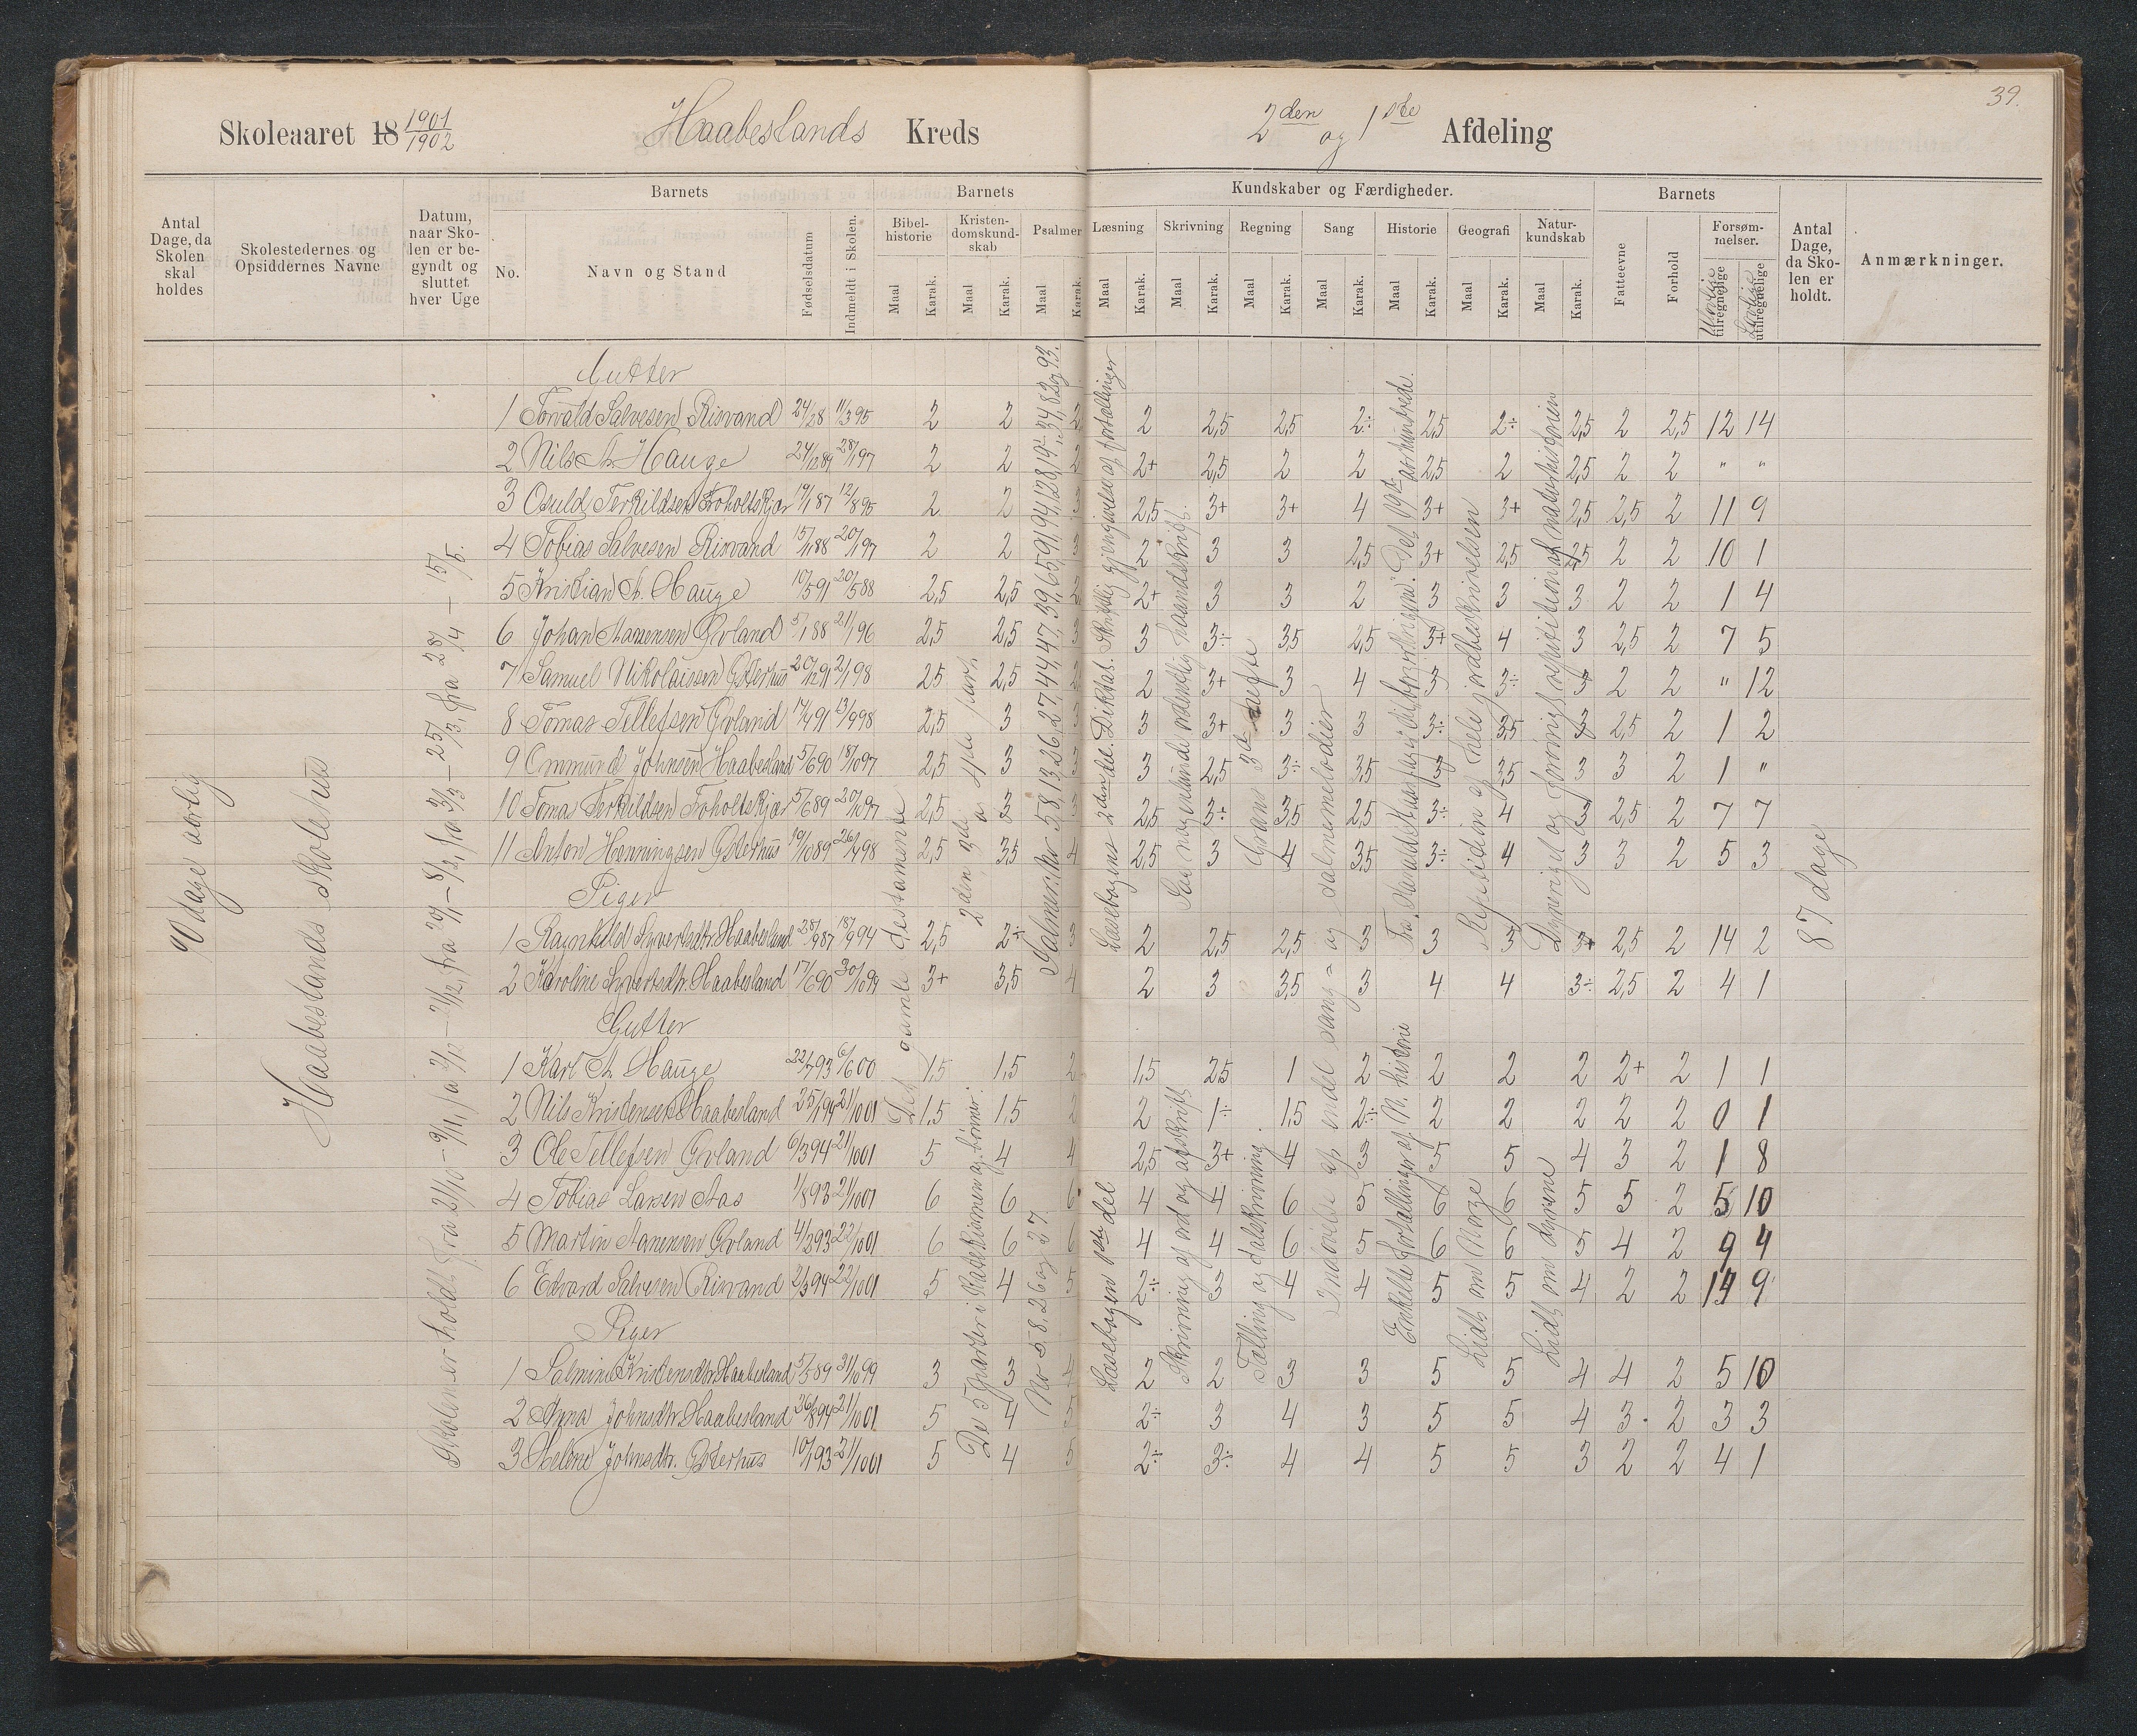 39.
Skoleaaret 18 1901/1902 Haabeslands Kreds 2den og 1ste Afdeling
Antal Dage, da Skolen skal holdes
Skolestedernes og Opsiddernes Navne
Datum, naar Skolen er begyndt og sluttet hver Uge
Barnets
No.
Navn og Stand
Fødselsdatum
Indmeldt i Skolen.
Barnets
Bibelhistorie
Kristendomskundskab
Psalmer
Maal Karak. Maal Karak. Maal Karak.
Kundskaber og Færdigheder.
Læsning Skrivning Regning Sang Historie Geografi Naturkundskab
Maal Karak. Maal Karak. Maal Karak. Maal Karak. Maal Karak. Maal Karak. Maal Karak.
Barnets
Fatteevne
Forhold
Forsømmelser.
tilregnelige
utilregnelige
Antal Dage, da Skolen er holdt.
Anmærkninger.
90 dage aarlig
Haabeslands Skolehus
Skolen er holdt fra 21/10 –
Det gamle testamente
2den, 3die og 4de part
Salmer: No 5, 8, 13, 26, 27, 44, 47, 39, 65, 59, 91, 94, 128, 194, 34, 82 og 93.
Læsebogens 2den del. Diktat. Skriftlig gjengivelse af fortællinger
haandskrift.
Grans 3d hefte
Indøvelse af endel sang- og salmemelodier
Repetition af hele jordbeskrivelsen
Dyreriget og
87 dage
Gutter
1 Torvald Salvesen Risvand 2 2 2 2 2,5 2,5 2÷ 2,5 2÷ 2,5 2 2,5 12 14
2 Nils A. Hauge 24/12 89 28/1 97 2 2 2 2+ 2,5 2 2 2,5 2 2,5 2 2 " "
3 Osuld Terkildsen Froholtskjær 12/8 95 2 2 3 2,5 3+ 3+ 4 3+ 3+ 2,5 2,5 2 11 9
4 Tobias Salvesen Risvand 20/1 97 2 2 3 2 3 3 2,5 3+ 2,5 2,5 2 2 10 1
5 Kristian A. Hauge 10/5 91 20/5 88 2,5 2,5 2 2+ 3 3 2 3 3 3 2 2 1 4
6 Johan Aanensen Øvland 5/1 88 21/1 96 2,5 2,5 3 3 3÷ 3,5 2,5 3+ 4 3 2,5 2 7 5
7 Samuel Nikolaisen Østerhus 20/12 91 2/1 98 2,5 2,5 2 3+ 3 4 3 3÷ 3 2 2 " 12
8 Tomas Tellefsen Øvland 17/4 91 13/9 98 2,5 3 3 3 3+ 3 3 3÷ 3,5 3 2,5 2 1 2
9 Ommund Johnsen Haabesland 5/6 90 18/10 97 2,5 3 3 3 2,5 3÷ 3,5 3 3,5 3 3 2 1 "
10 Tomas Terkildsen Froholtskjær 5/6 89 20/10 97 2,5 3 3 2,5 3÷ 3,5 2,5 3÷ 4 3 2,5 2 7 7
11 Anton Henningsen Østerhus 10/10 89 26/4 98 2,5 3,5 4 2,5 3 4 3,5 3÷ 4 3 3 2 5 3
Piger
1 Ragnhild Syvertsdtr. Haabesland 28/9 87 18/9 94 2,5 2÷ 3 2 2,5 2,5 3 3 3 3+ 2,5 2 14 2
2 Karoline Syvertsdtr. Haabesland 17/6 90 30/10 99 3+ 3,5 4 2 3 3,5 3 4 4 3÷ 2,5 2 4 1
Gutter
1 Karl A. Hauge 22/7 93 6/6 00 1,5 1,5 2 1,5 2,5 1 2 2 2 2 2+ 2 1 1
2 Nils Kristensen Haabesland 25/1 94 21/10 01 1,5 1,5 2 2 1÷ 1,5 2÷ 2 2 2 2 2 0 1
3 Ole Tellefsen Øvland 6/3 94 21/10 01 5 4 4 2,5 3+ 4 3 5 5 4 3 2 1 8
4 Tobias Larsen Aas 1/8 93 21/10 01 6 6 6 4 4 6 5 6 6 5 5 2 5 10
5 Martin Aanensen Øvland 4/2 93 22/10 01 6 6 6 4 4 6 5 6 6 5 4 2 9 4
6 Edvard Salvesen Risvand 2/3 94 22/10 01 5 4 5 2÷ 3 4 4 5 5 4 2 2 9
Piger
1 Salmine Kristensdtr. Haabesland 31/10 99 3 3 4 2 2 3 3 5 5 4 4 2 5 10
2 Anna Johnsdtr. Haabesland 21/10 01 5 4 5 2÷ 3 4 3 5 5 4 3 2 3 3
3 Helene Johnsdtr. Østerhus 10/1 93 21/10 01 5 4 5 2÷ 3÷ 4 4 5 5 3 2 2 4 1
De 5 parter i Katekismen og bønner.
No 5, 8, 26 og 27.
Læsebogen 1ste del
Skrivning af ord og afskrift
Tælling og talskrivning.
Enkelte fortællinger af N. historie
Lidt om Norge
Lidt om dyrene